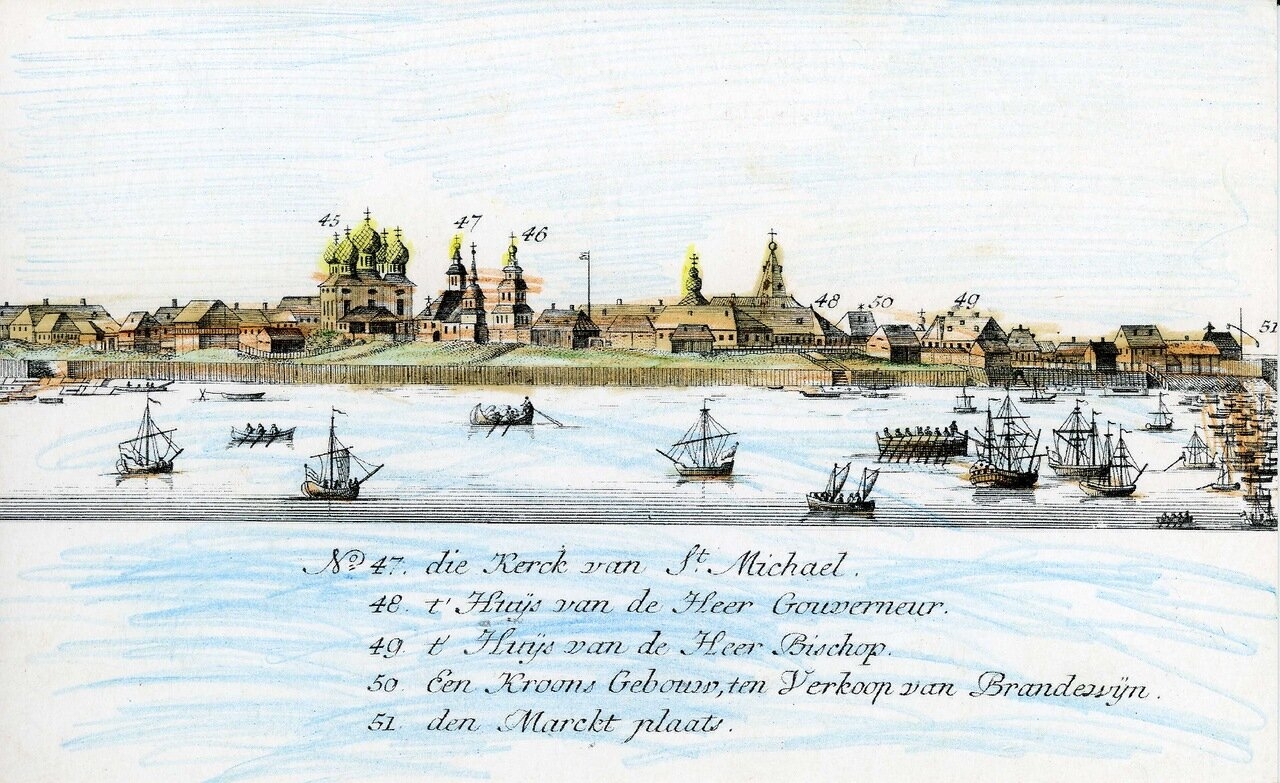 45 47 46
48 50 49 51
Nº 47. die Kerck van St. Michael.
48. t' Huijs van de Heer Gouverneur.
49. t' Huijs van de Heer Bischop.
50. Een Kroons Gebouw, ten Verkoop van Brandewijn.
51. den Marckt plaats.